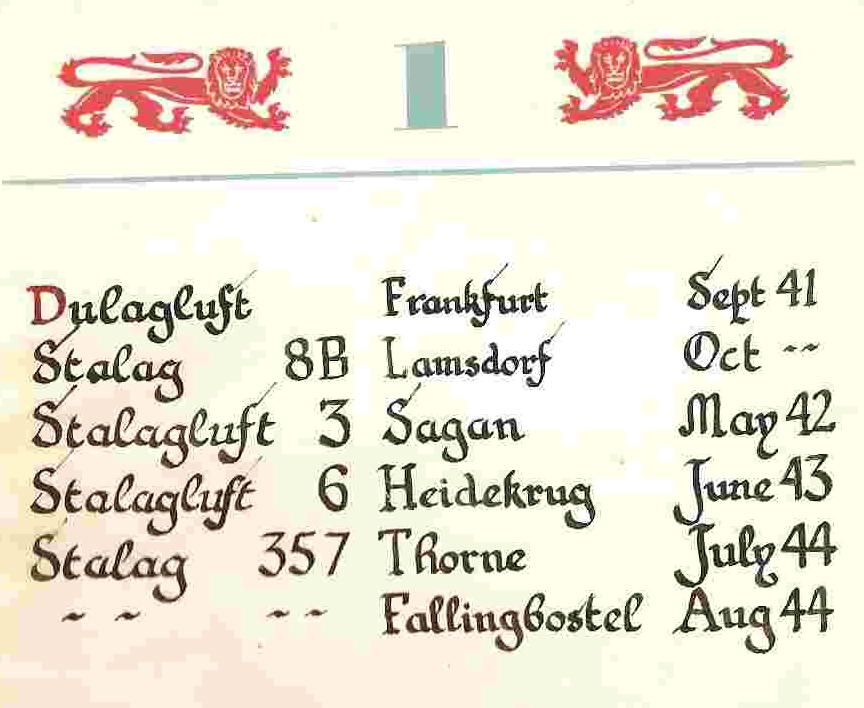 I
Dulagluft Frankfurt Sept 41
Stalag 8B Lamsdorf Oct ~~
Stalagluft 3 Sagan May 42
Stalagluft 6 Heidekrug June 43
Stalag 357 Thorne July 44
~ ~ ~ ~ Fallingbostel Aug 44